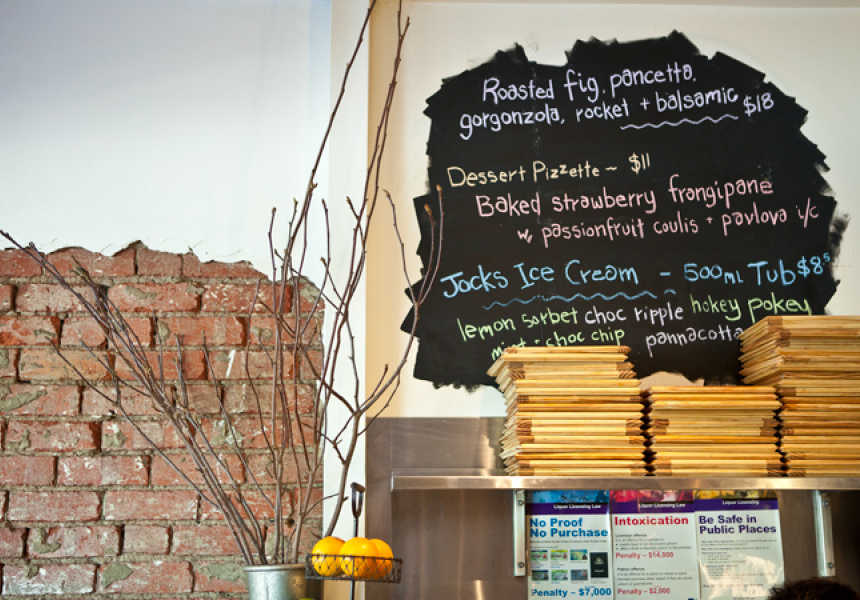 Roasted fig, pancetta,
gorgonzola, rocket + balsamic $18
Dessert Pizzette ~ $11
Baked strawberry frangipane
w, passionfruit coulis + pavlova i/c
Jocks Ice Cream - 500ml Tub $8⁵
lemon sorbet choc ripple hokey pokey
mint + choc chip pannacotta
Liquor Licensing Law
No Proof
No Purchase
Penalty – $7,000
Liquor Licensing Law
Intoxication
Licensee offence
Penalty – $14,000
Patron offence
Penalty – $2,000
Liquor Licensing Law
Be Safe in
Public Places